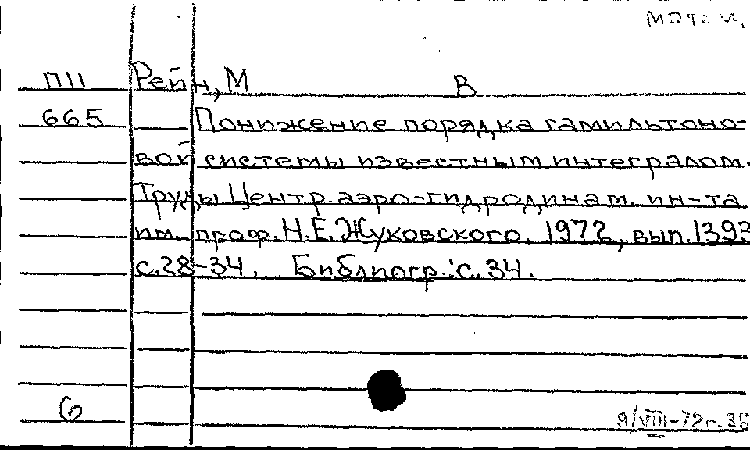 П11 Рейн, М В
665 Понижение порядка гамильтоно-
вой системы известным интегралом.
Труды Центр. аэро-гидродинам. ин-та
им. проф. Н.Е. Жуковского, 1972, вып. 1393
с. 28-34. Библиогр.: с. 34.
6 9/VIII-72г.